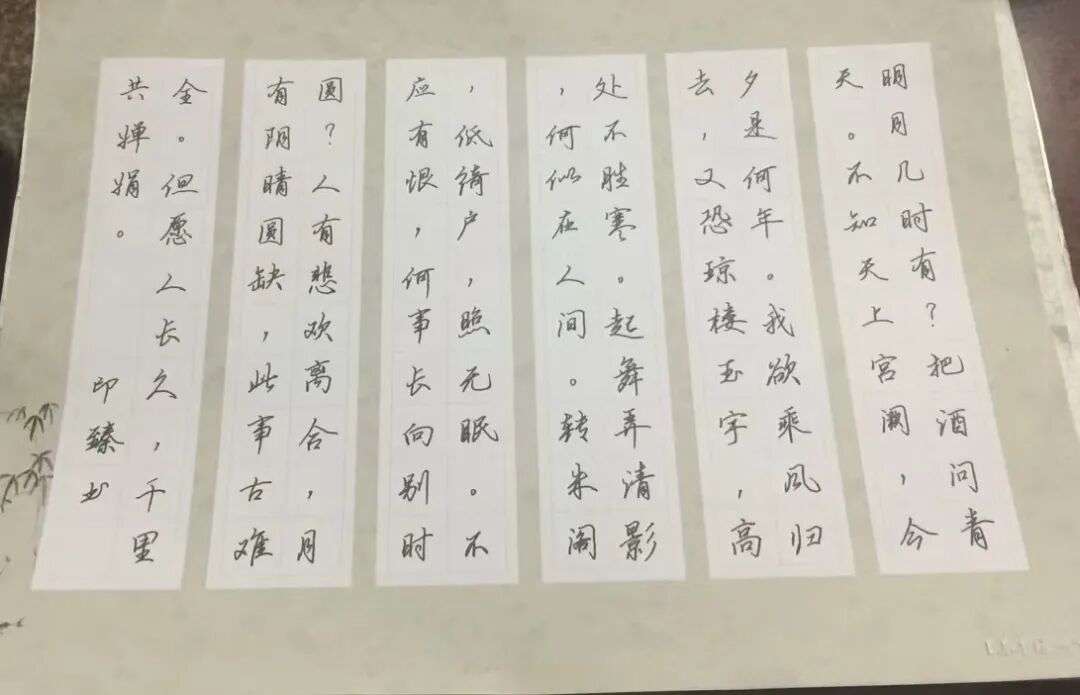 明月几时有？把酒问青
天。不知天上宫阙，今
夕是何年。我欲乘风归
去，又恐琼楼玉宇，高
处不胜寒。起舞弄清影
，何似在人间。转朱阁
，低绮户，照无眠。不
应有恨，何事长向别时
圆？人有悲欢离合，月
有阴晴圆缺，此事古难
全。但愿人长久，千里
共婵娟。
印臻书